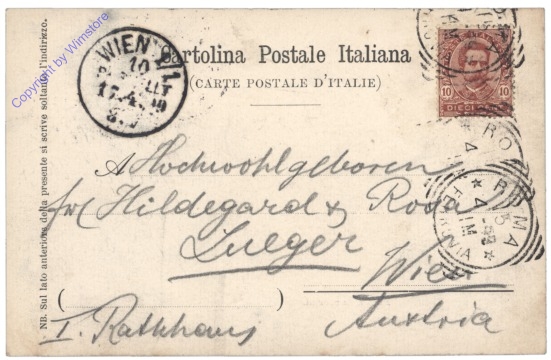 Cartolina Postale Italiana
(CARTE POSTALE D'ITALIE)
WIEN
10
DIECI
10
ROMA
ROMA
NB. Sul lato anteriore della presente si scrive soltanto l'indirizzo.
Copyright by Wimstore
Hochwohlgeboren
Hildegard & Rosa
Lueger
Wien
I. Rathhaus
Austria